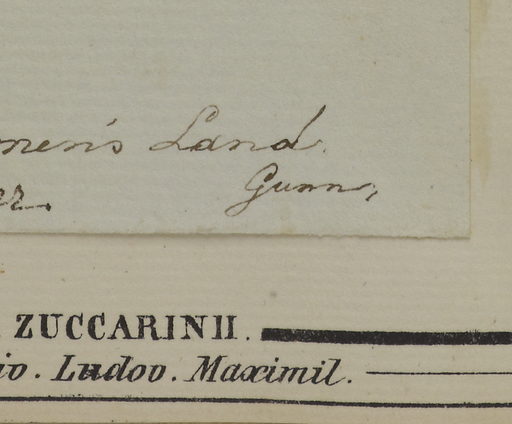 men's Land.
Gunn,
ZUCCARINII.
io. Ludov. Maximil.